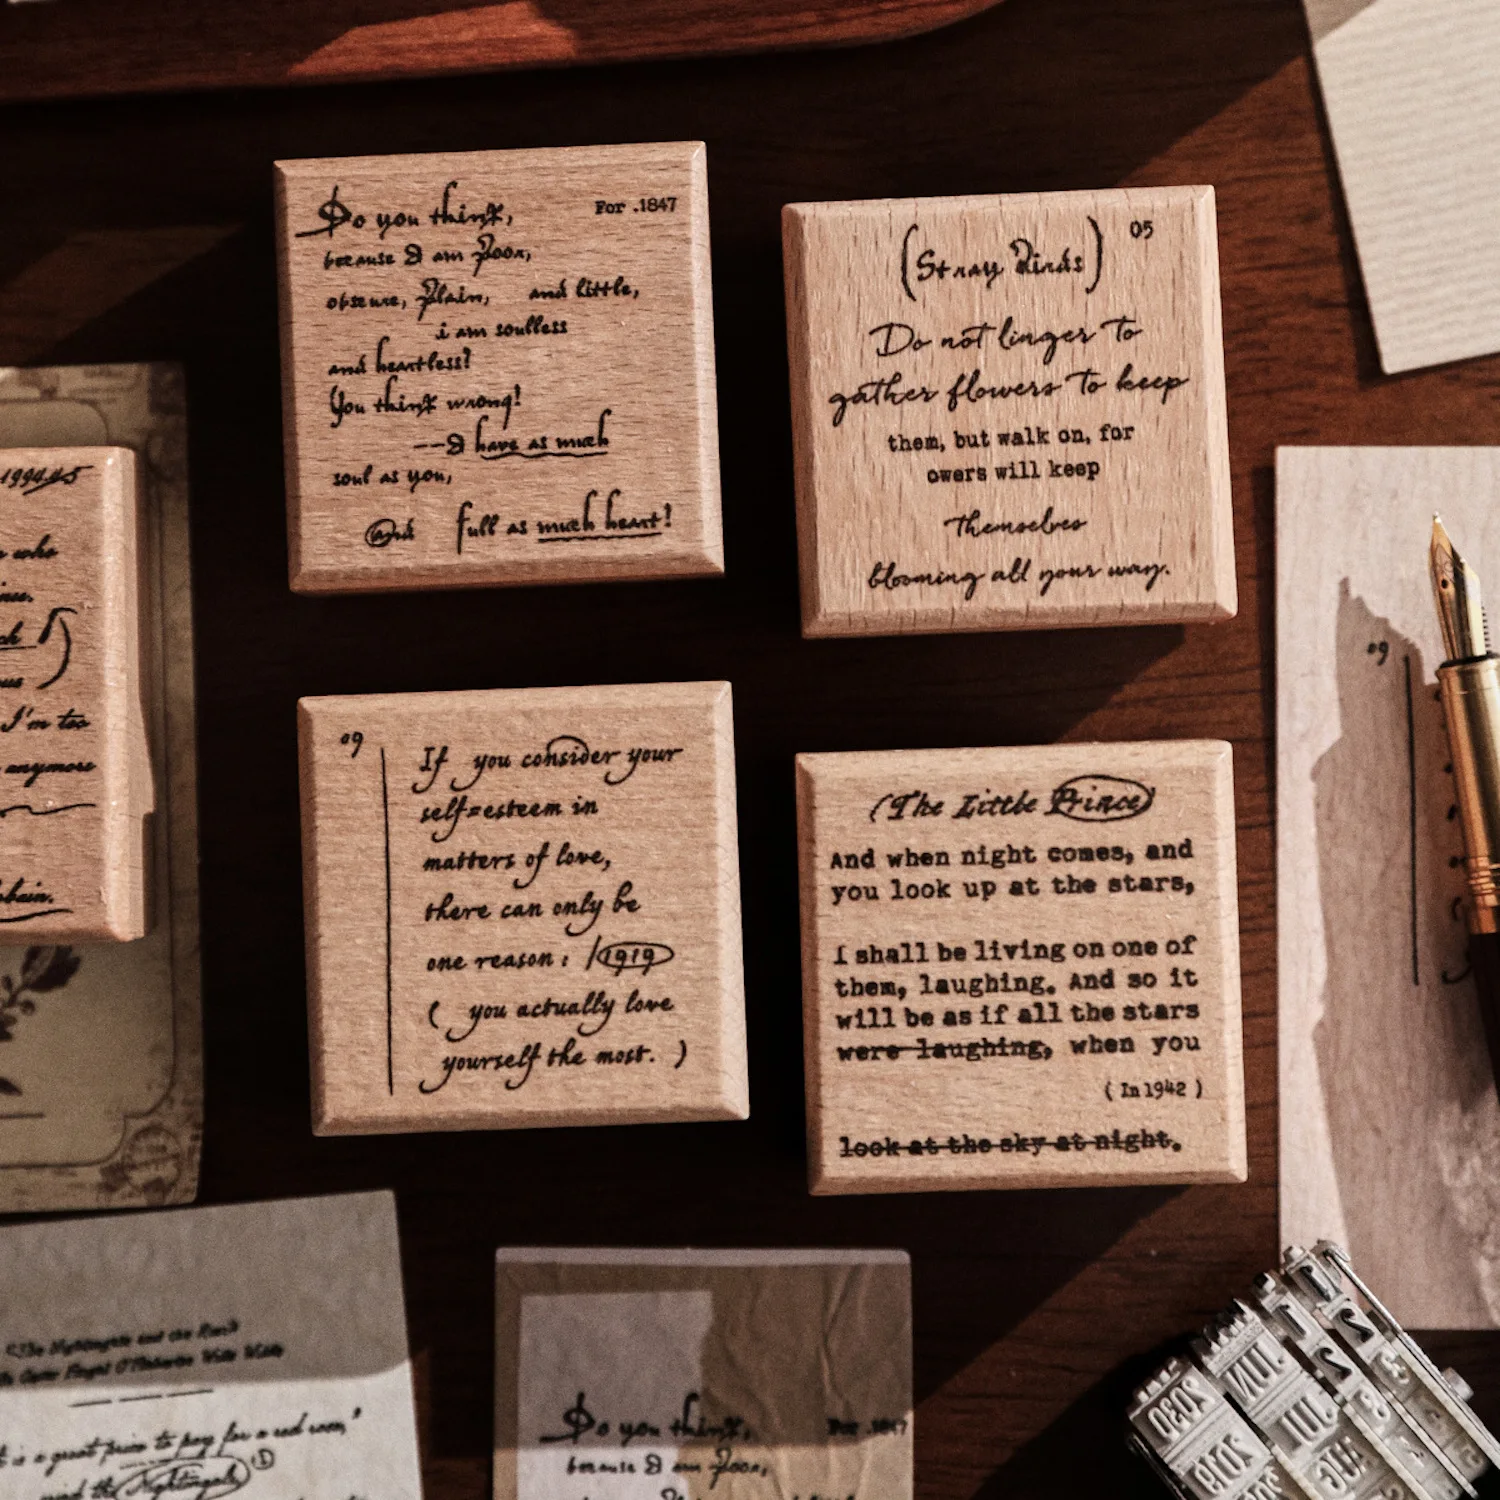 Do you think,
For .1847
because I am Poor,
obscure, Plain, and little,
i am soulless
and heartless?
You think wrong!
——I have as much
soul as you,
and full as much heart!
(Stray Birds)
05
Do not linger to
gather flowers to keep
them, but walk on, for
owers will keep
themselves
blooming all your way.
1994.4.5
who
I'm too
anymore
09
If you consider your
self=esteem in
matters of love,
there can only be
one reason: /1919
( you actually love
yourself the most. )
(The Little Prince)
And when night comes, and
you look up at the stars,
I shall be living on one of
them, laughing. And so it
will be as if all the stars
were laughing, when you
( In 1942 )
look at the sky at night.
09
is a great price to pay for a red rose,"
the Nightingale
Do you think,
For .1847
because I am Poor,
JUN.
JUL.
2020
2019